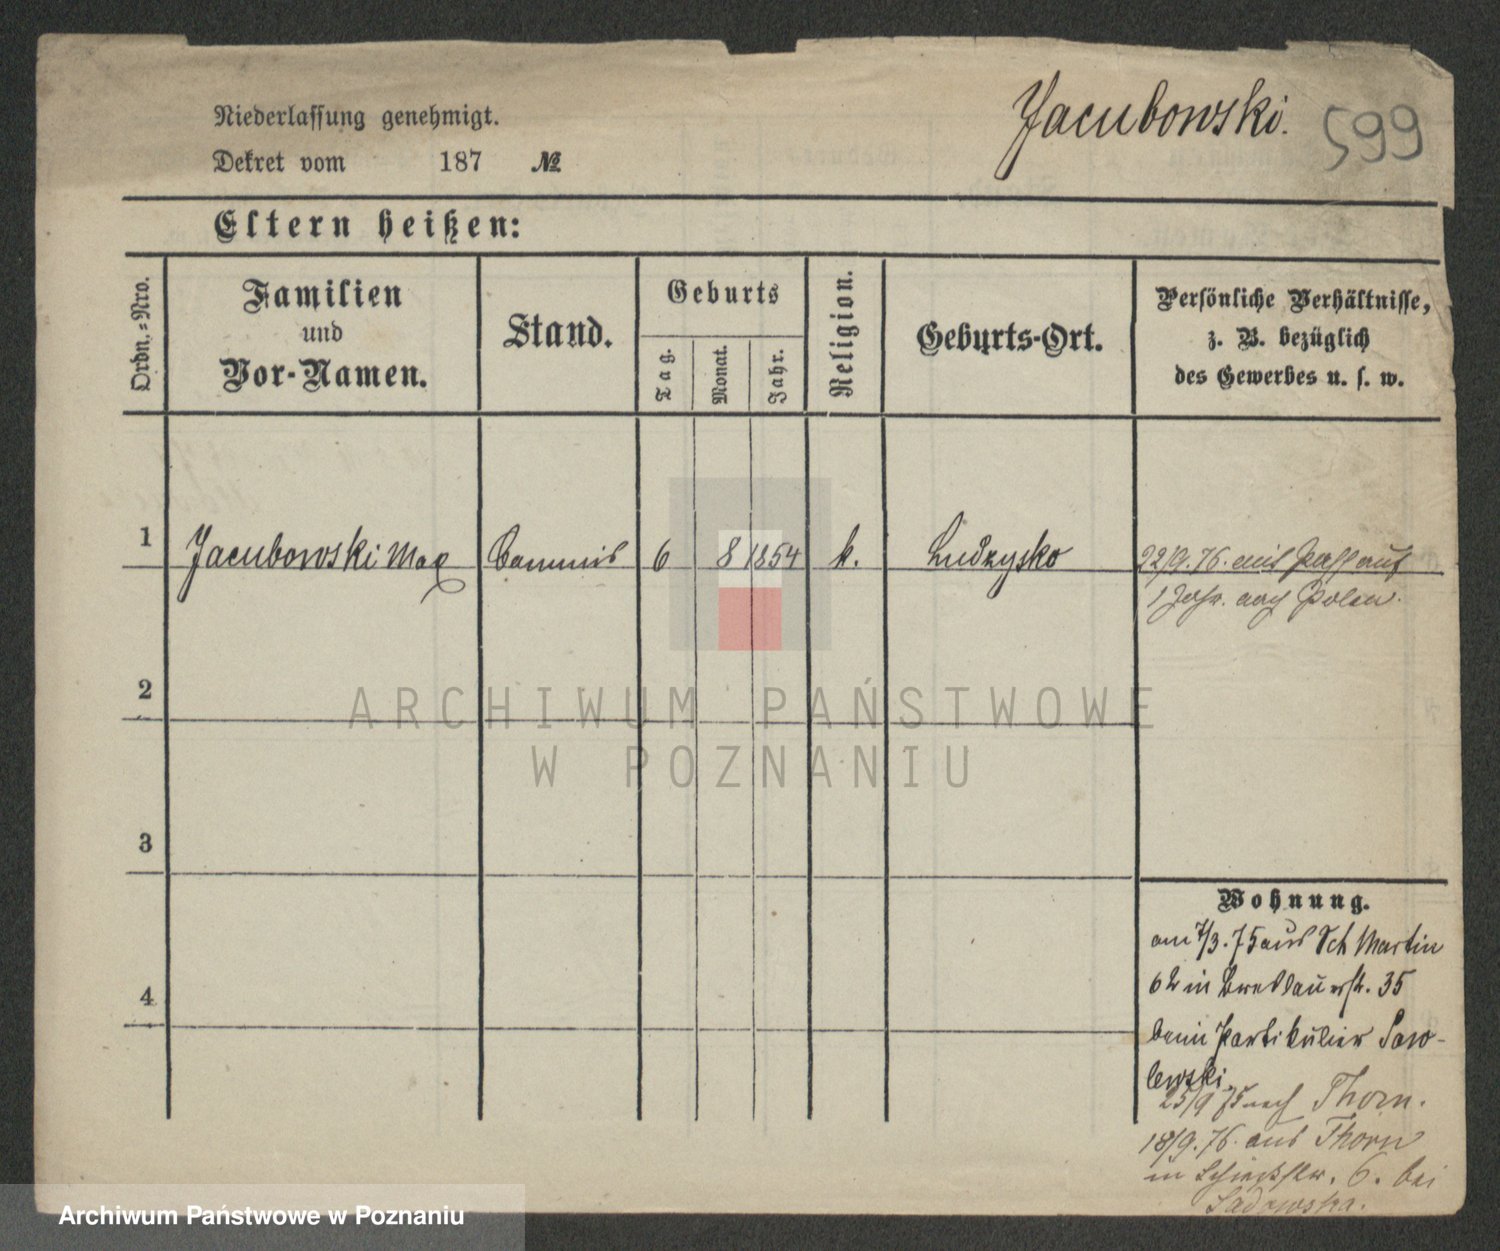 Niederlassung genehmigt.
Dekret vom 187 №
Jacubowski. 599
Eltern heißen:
Ordn.-Nro.
Familien
und
Vor-Namen.
Stand.
Geburts
Tag.
Monat.
Jahr.
Religion.
Geburts-Ort.
Persönliche Verhältnisse,
z. B. bezüglich
des Gewerbes u. s. w.
1 Jacubowski Max Commis 6 8 1854 k. Ludzysko 22/9. 76. mit Paß auf
1 Jahr. nach Polen.
2
3
4
Wohnung.
am 7/3. 75 aus Sct Martin
62 in Breslauerstr. 35
beim Partikulier Paw-
lewski.
25/9 75 nach Thorn.
18/9. 76. aus Thorn
in 6. bei
Sadowska.
ARCHIWUM PAŃSTWOWE
W POZNANIU
Archiwum Państwowe w Poznaniu